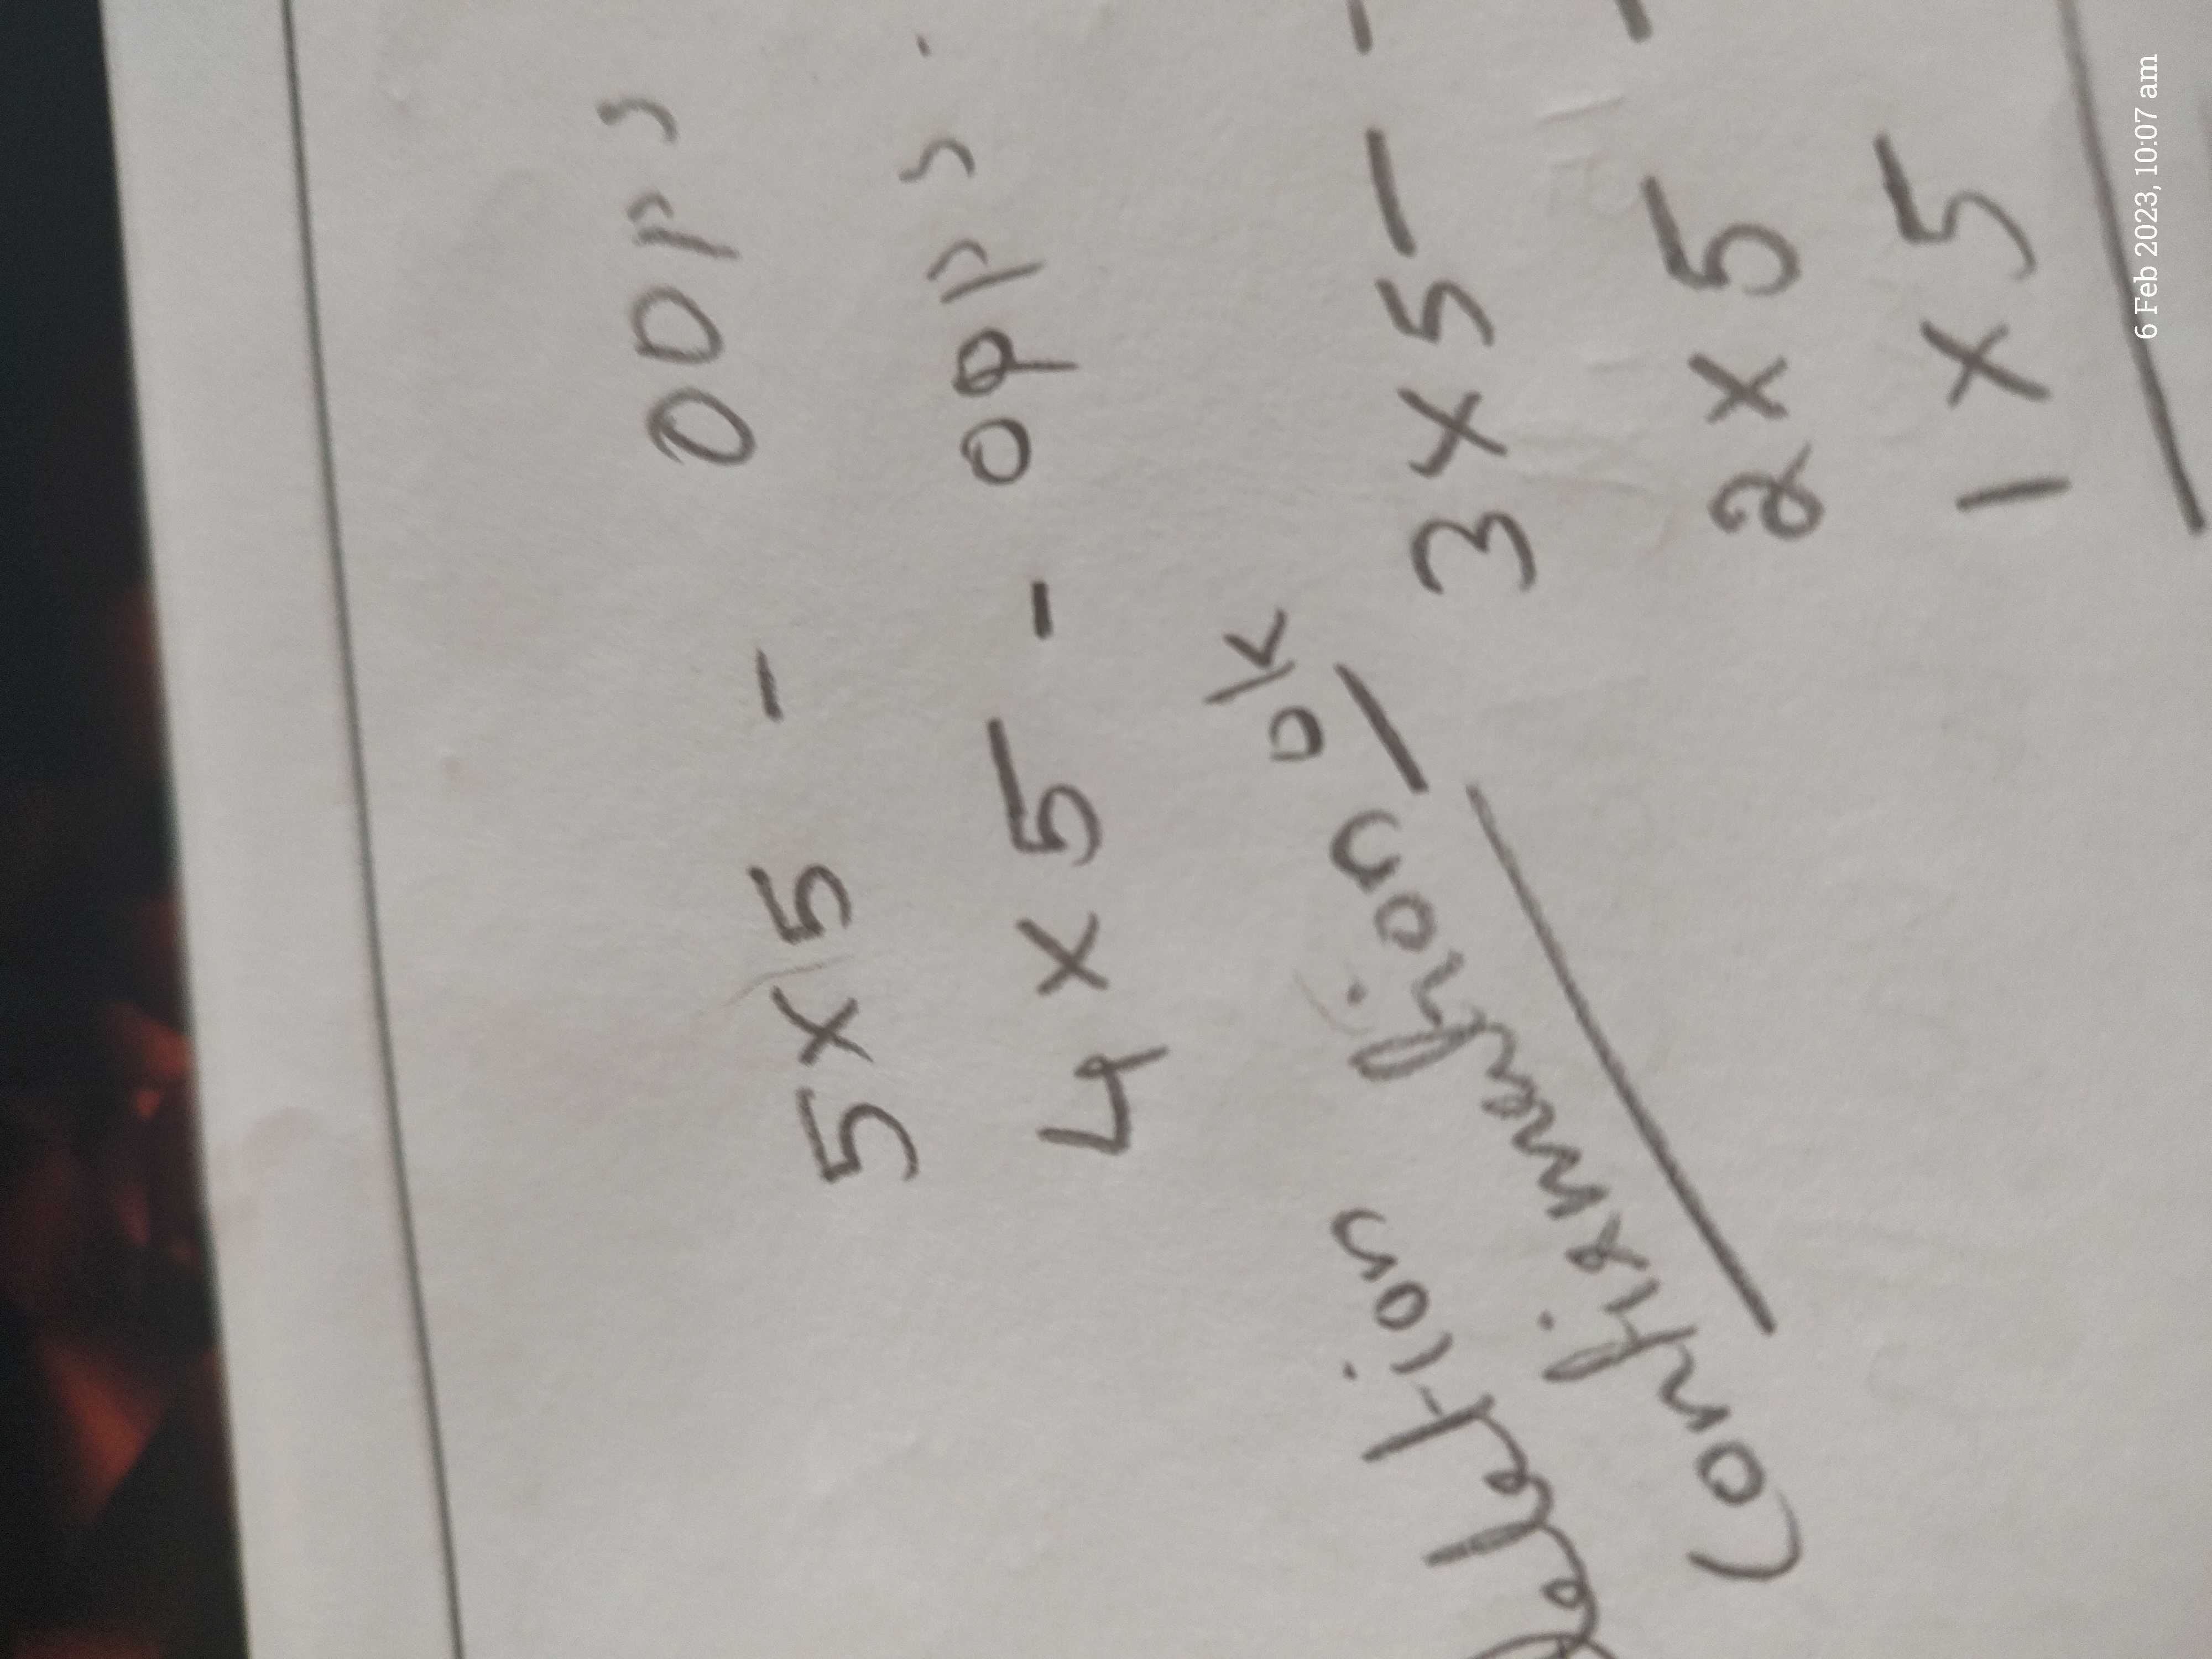 5 x 5 - 00ps
4 x 5 - 00ps.
ok
3 x 5 - -
2 x 5 -
1 x 5
deletion
Confirmation
6 Feb 2023, 10:07 am